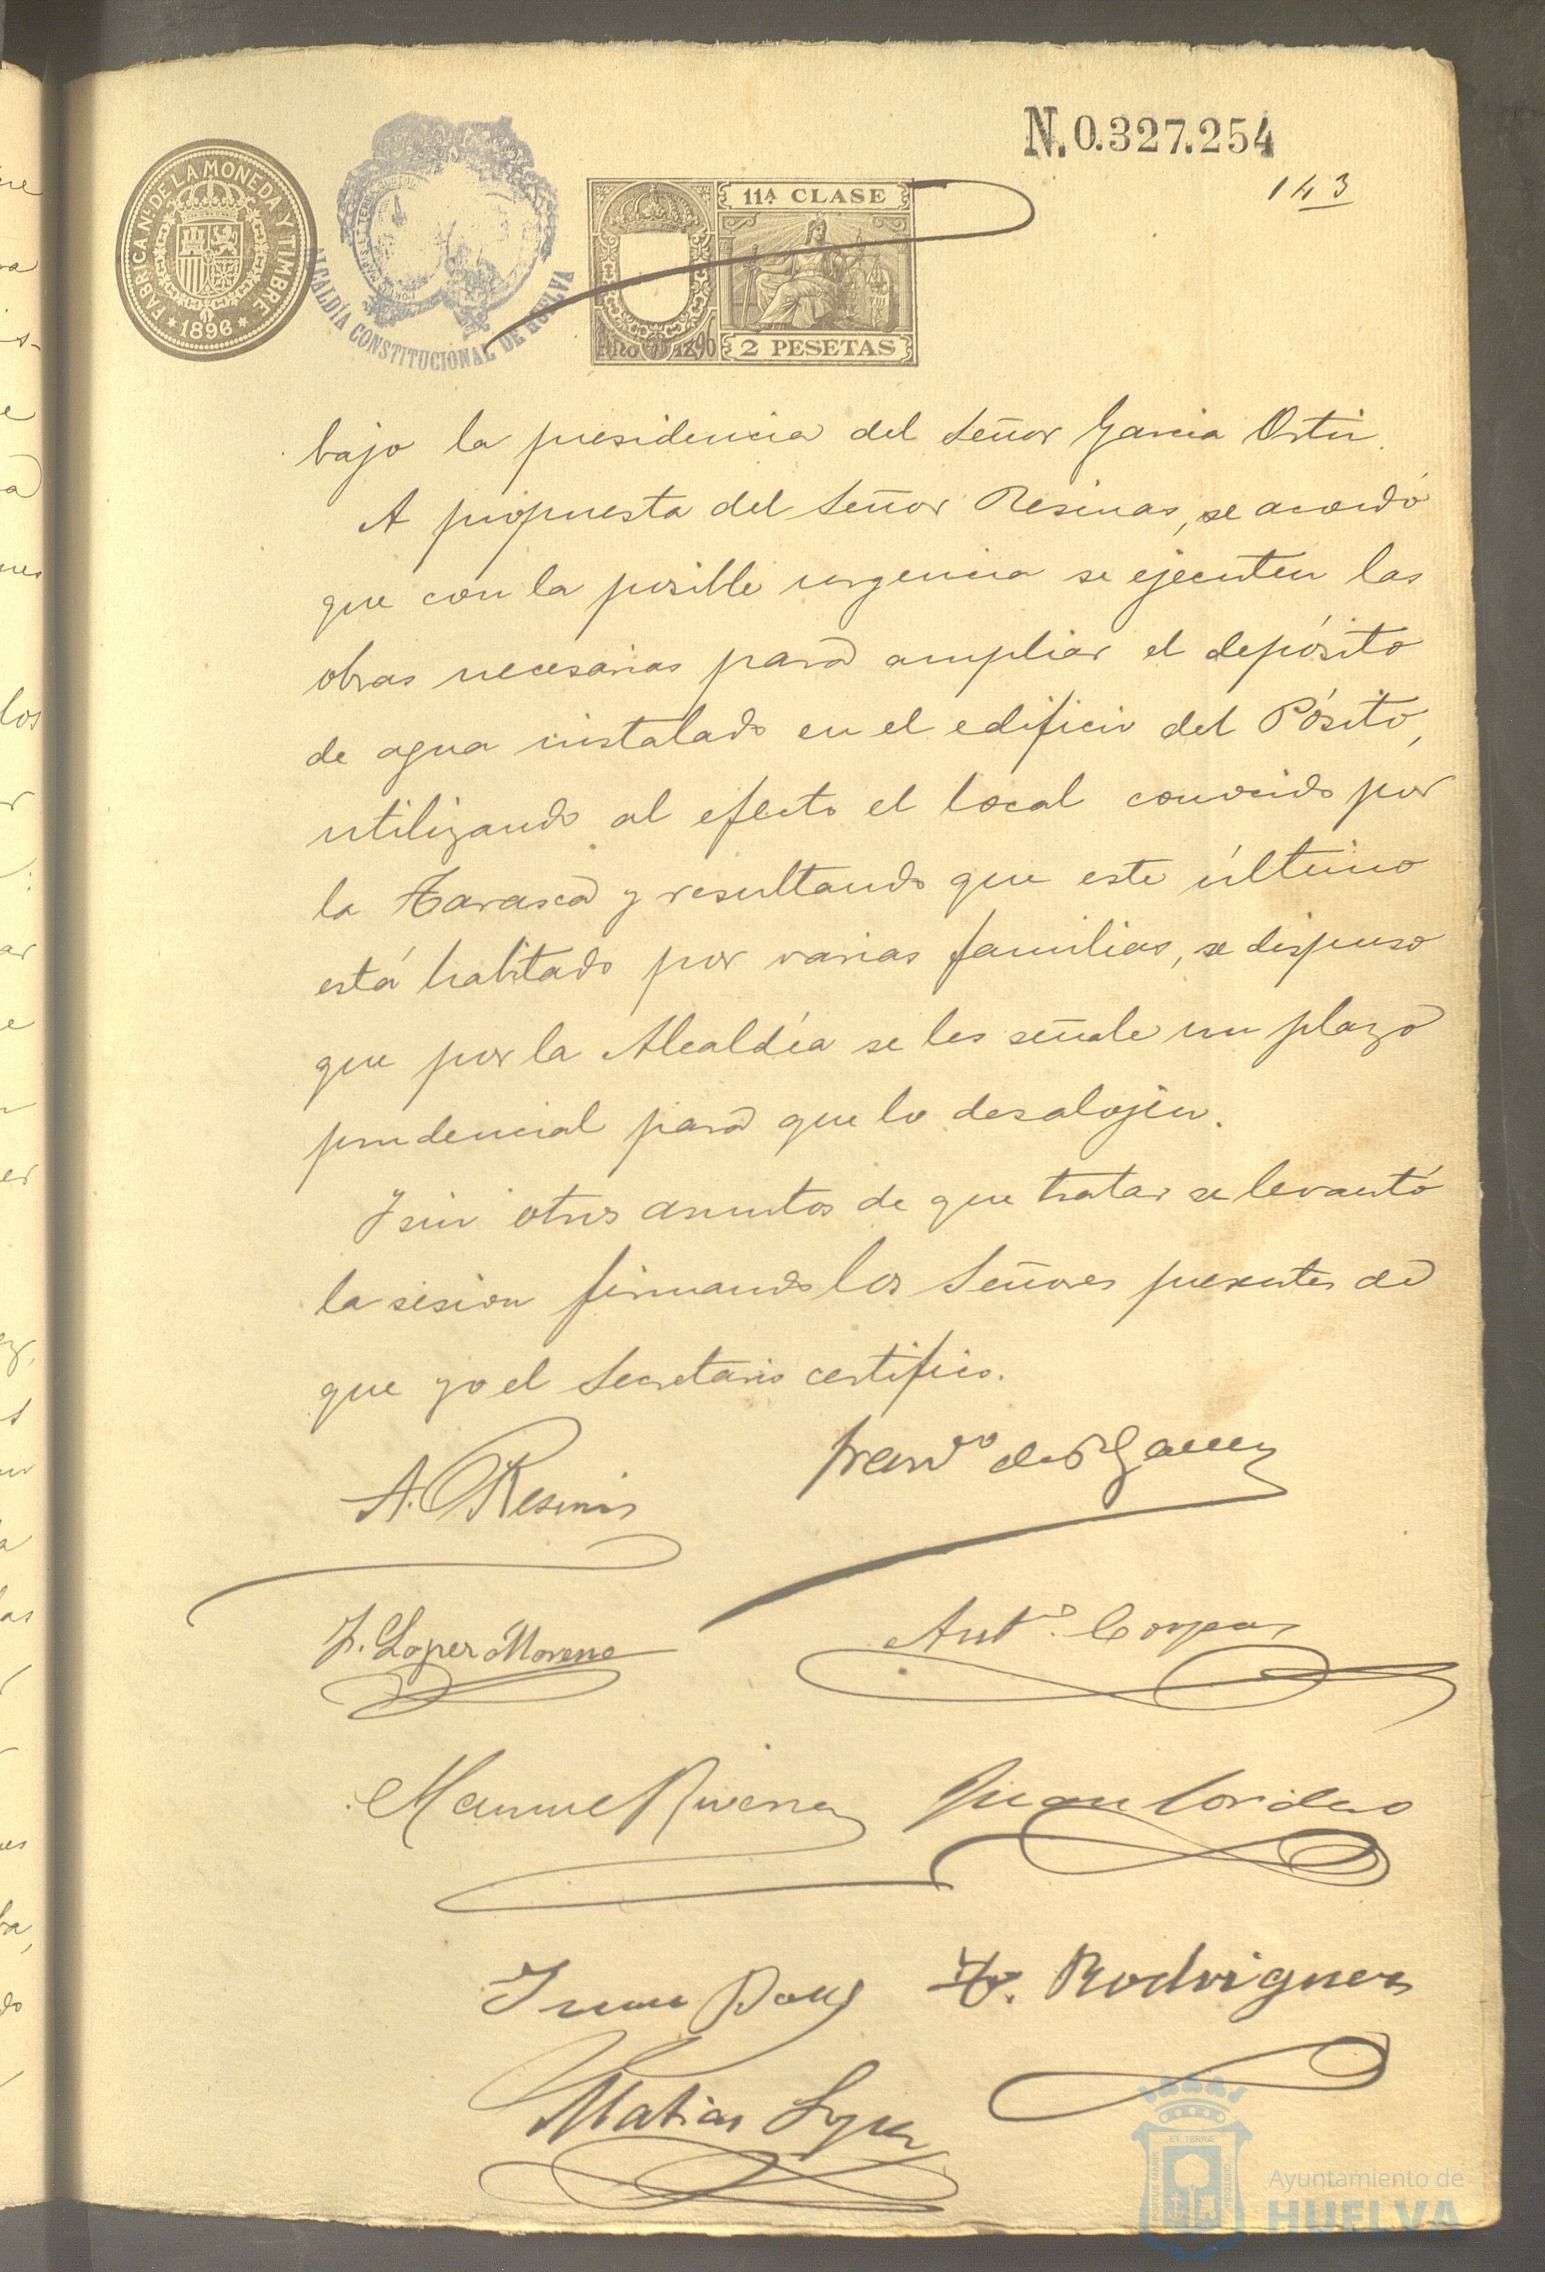 N.0.327.254
143
FABRICA NL. DE LA MONEDA Y TIMBRE
1896
ALCALDÍA CONSTITUCIONAL DE HUELVA
11A CLASE
Año de 1896
2 PESETAS
bajo la presidencia del Señor Garcia Ortiz.
A propuesta del Señor Resinas, se acordó
que con la posible urgencia se ejecuten las
obras necesarias para ampliar el depósito
de agua instalado en el edificio del Pósito,
utilizando al efecto el local conocido por
la Tarasca y resultando que este último
está habitado por varias familias, se dispuso
que por la Alcaldía se les señale un plazo
prudencial para que lo desalojen.
Y sin otros asuntos de que tratar se levantó
la sesion firmando los Señores presentes de
que yo el Secretario certifico.
A. Resinas
Franco de P Garcia
J. Lopez Moreno
Anto. Corpas
Manuel Rivera
Juan Cordero
Rodriguez
Matias Lopez
ET TERRA
Ayuntamiento de
HUELVA